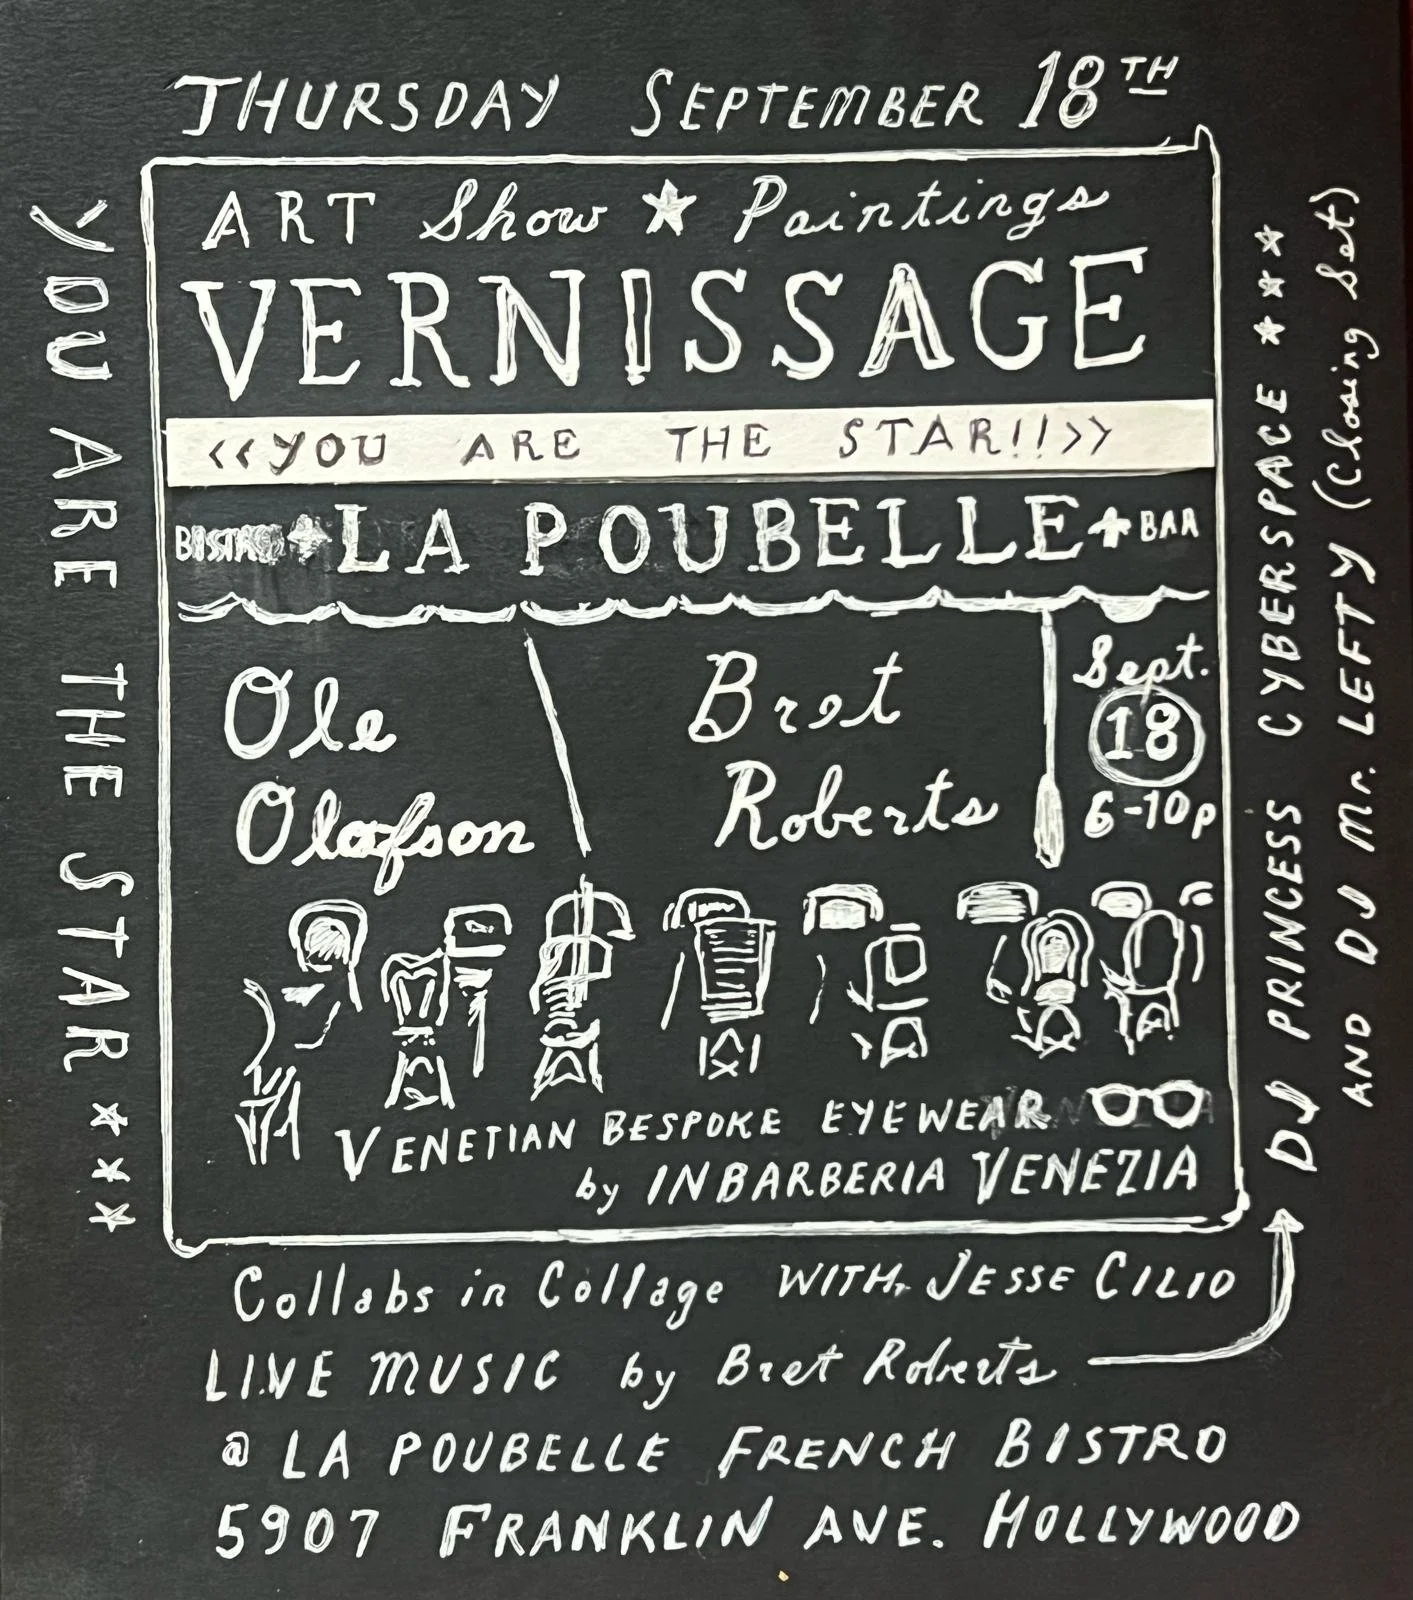 THURSDAY SEPTEMBER 18TH
ART Show ★ Paintings
VERNISSAGE
<<YOU ARE THE STAR!!>>
BISTRO LA POUBELLE BAR
Ole Olafson
Bret Roberts
Sept. 18 6-10p
VENETIAN BESPOKE EYEWEAR
by INBARBERIA VENEZIA
Collabs in Collage WITH JESSE CILIO
LIVE MUSIC by Bret Roberts
@ LA POUBELLE FRENCH BISTRO
5907 FRANKLIN AVE. HOLLYWOOD
YOU ARE THE STAR ★★★
DJ PRINCESS CYBERSPACE ★★★
AND DJ Mr. LEFTY (Closing Set)